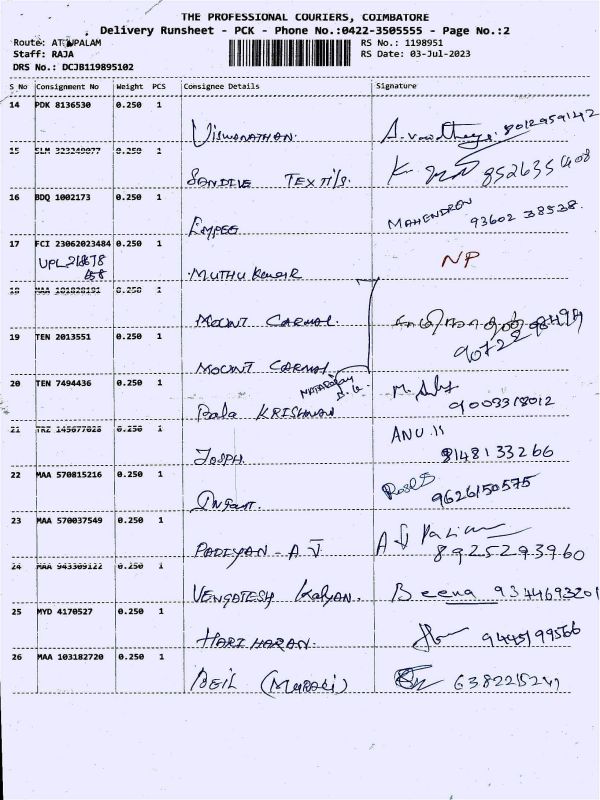 THE PROFESSIONAL COURIERS, COIMBATORE
Delivery Runsheet - PCK - Phone No.:0422-3505555 - Page No.:2
Route: AT PALAM
Staff: RAJA
DRS No.: DCJB119895102
RS No.: 1198951
RS Date: 03-Jul-2023
S No Consignment No Weight PCS Consignee Details Signature
14 PDK 8136530 0.250 1
Viswanathan. 8012959142
15 0.250 1
SANDIVE TEX 8526355408
16 BDQ 1002173 0.250 1
EMPEE MAHENDRAN 93602 38538
17 FCI 23062023484 0.250 1
UPL 218678
658
MUTHU Kumar NP
18 MAA 0.250 1
MOUNT CARMAL
19 TEN 2013551 0.250 1
MOUNT CARMAL
20 TEN 7494436 0.250 1
Bala KRISHNAN 9003318012
21 TRZ 145677028 0.250 1
JOSPH. ANU. 8148133266
22 MAA 570815216 0.250 1
9626150575
23 MAA 570037549 0.250 1
PADIYAN - A J A J Palian 8925293960
24 MAA 943309122 0.250 1
VENGATESH Kalyan. Beena 9344693201
25 MYD 4170527 0.250 1
HARI HARAN. 9445199566
26 MAA 103182720 0.250 1
BEIL (Murali) 6382215241